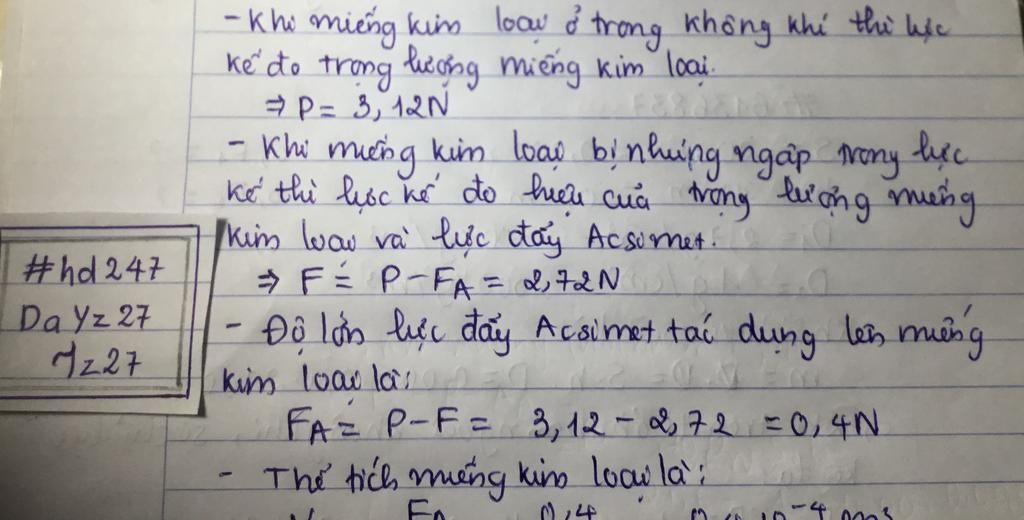 - Khi miếng kim loại ở trong không khí thì lực
kế đo trọng lượng miếng kim loại.
⇒ P = 3,12N
- Khi miếng kim loại bị nhúng ngập trong lực
kế thì lực kế đo hiệu của trọng lượng miếng
kim loại và lực đẩy Acsimet.
⇒ F = P - FA = 2,72N
- Độ lớn lực đẩy Acsimet tác dụng lên miếng
kim loại là:
FA = P - F = 3,12 - 2,72 = 0,4N
- Thể tích miếng kim loại là:
FA 0,4
#hd247
DaYz27